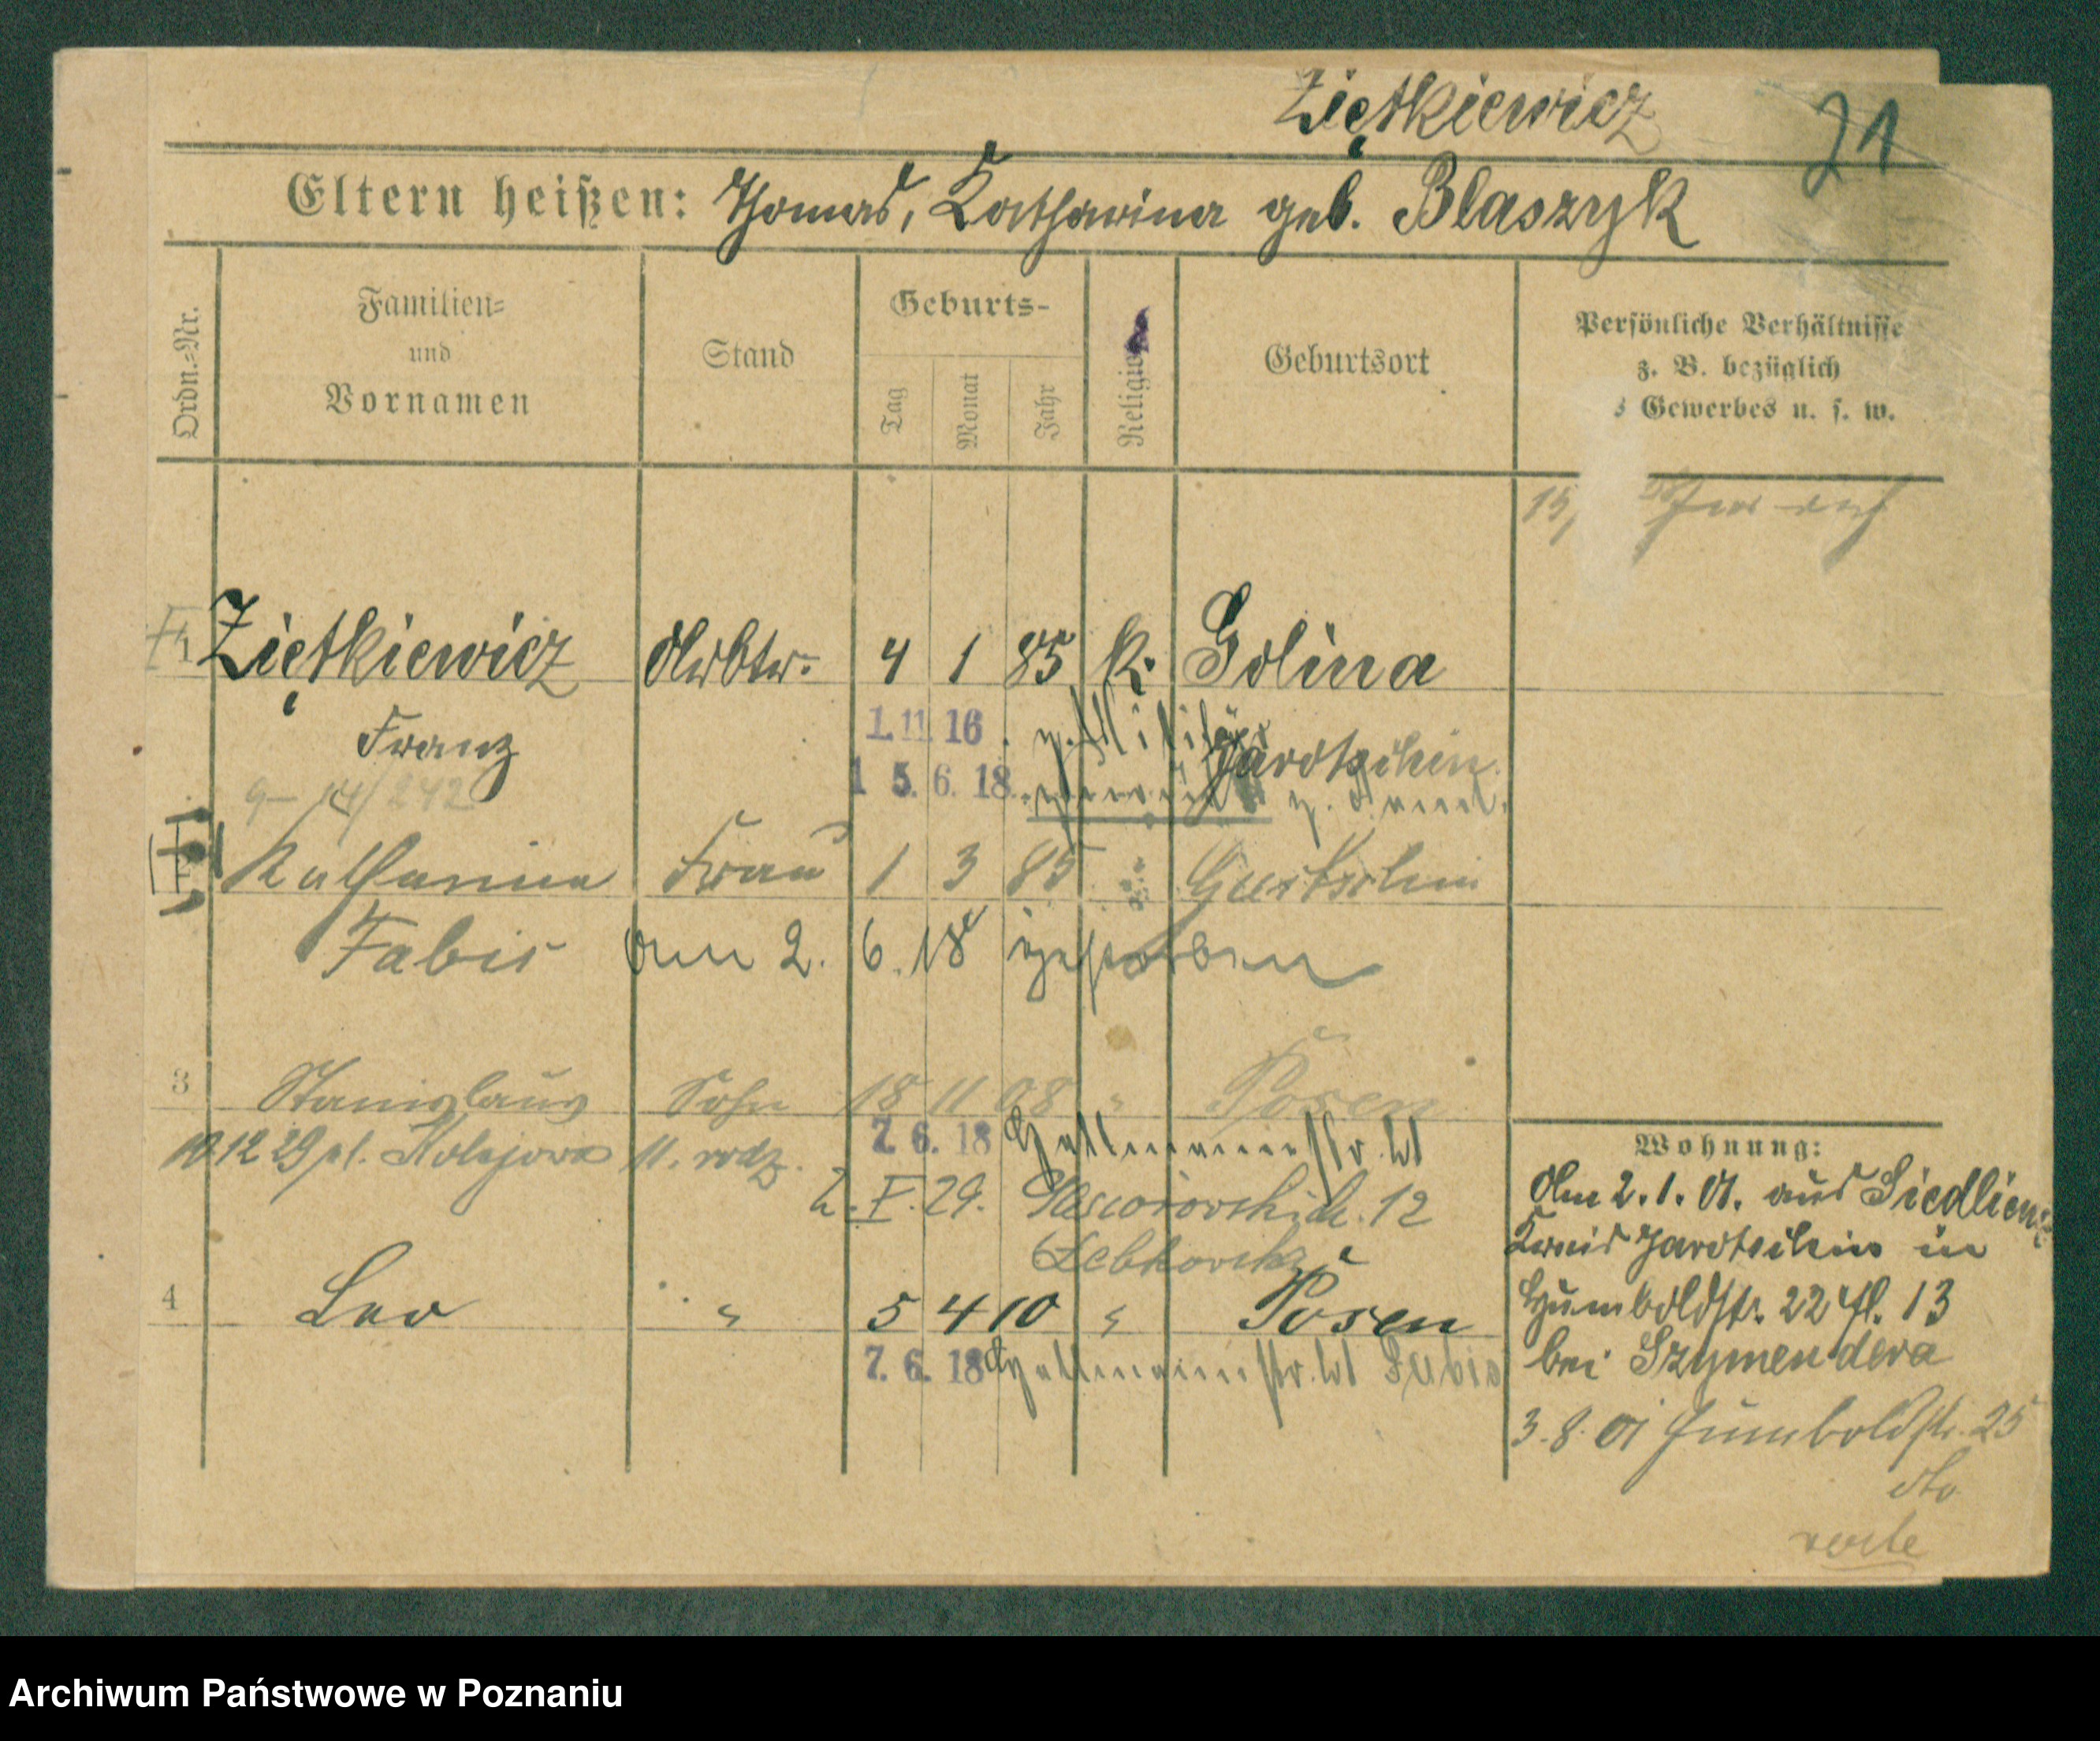 Ziętkiewicz
21
Eltern heißen: Thomas, Katharina geb. Blaszyk
Ordn.-Nr.
Familien- und Vornamen
Stand
Geburts-
Tag
Monat
Jahr
Religion
Geburtsort
Persönliche Verhältnisse
z. B. bezüglich
Gewerbes u. s. w.
15,
1 Ziętkiewicz Arbtr. 4 1 85 k. Golina
Franz
1. 11 16 z. Militär
Jarotschin
15. 6. 18
9- 14/242
Katharina Frau 1 3 85 "
Fabis am 2. 6. 18 gestorben
3 Stanislaus Sohn 18 11 08 " Posen
10 12 29 pl. Kolejowa 11. rodz.
7. 6. 18
2. V. 29. 12
4 Leo " 5 4 10 " Posen
7. 6. 18 Fabis
Wohnung:
Am 2. 1. 01. aus Siedlien
Kreis Jarotschin in
Humboldstr. 22 Fl. 13
bei Szymendera
3. 8. 01 Humboldstr. 25
dto
verte
Archiwum Państwowe w Poznaniu